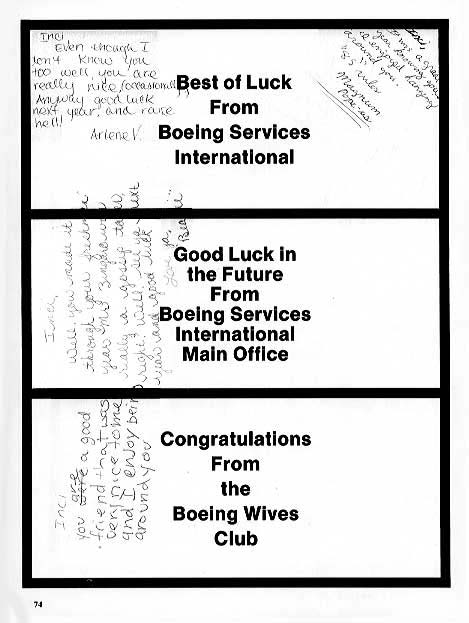 Inci
Even though I
don't know you
too well, you are
really nice (occasionally)!
Anyway good luck
next year, and raise
hell!
Arlene V.
a great
year
around you.
Best of Luck
From
Boeing Services
International
Inci,
Well you made it
through your freshman
year
really a
right? Well see ya next
year and good luck
Good Luck in
the Future
From
Boeing Services
International
Main Office
Inci
you are a good
friend that was
very nice to me
and I enjoy being
around you
Congratulations
From
the
Boeing Wives
Club
74